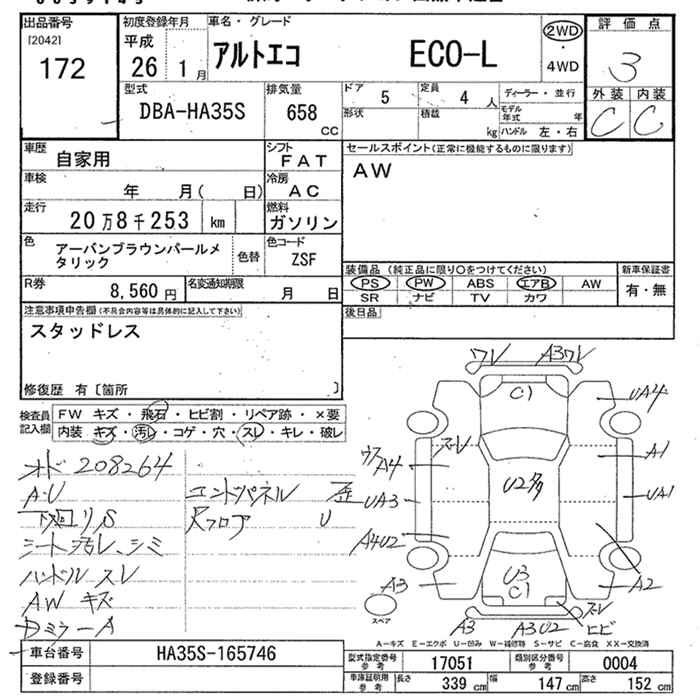 出品番号
[2042]
172
初度登録年月
平成
26 1 月
車名・グレード
アルトエコ ECO-L
2WD
・
4WD
評価点
3
外装 内装
C C
型式
DBA-HA35S
排気量
658
cc
ドア 5
定員 4 人
形状
積載 kg
ディーラー・並行
モデル年式 年
ハンドル 左・右
車歴
自家用
シフト
FAT
車検
年 月( 日)
冷房
AC
走行
20万8千253 km
燃料
ガソリン
色
アーバンブラウンパールメタリック
色替
色コード
ZSF
R券
8,560 円
名変通知期限
月 日
セールスポイント(正常に機能するものに限ります)
AW
装備品 (純正品に限り○をつけてください)
PS PW ABS エアB AW
SR ナビ TV カワ
新車保証書
有・無
後日品
注意事項申告欄(不具合内容等は具体的に記入して下さい)
スタッドレス
修復歴 有〔箇所 〕
検査員記入欄
FW キズ・飛石・ヒビ割・リペア跡・×要
内装 キズ・汚レ・コゲ・穴・スレ・キレ・破レ
オド 208264
A.U
下廻リS
シート汚レ、シミ
ハンドル スレ
AW キズ
Dミラー A
エンドパネル 歪
Rフロア U
ワレ A3ワレ
C1
UA4
スレ
A4
A1
U2多
UA3
UA1
A4U2
U3
C1
A3
A2
スレ
ヒビ
A3
A3U2
スペア
A-キズ E-エクボ U-凹み W-補修跡 S-サビ C-腐食 XX-交換済
車台番号 HA35S-165746
登録番号
型式指定番号 参考 17051
類別区分番号 参考 0004
車庫証明用 参考 長さ 339 cm 幅 147 cm 高さ 152 cm